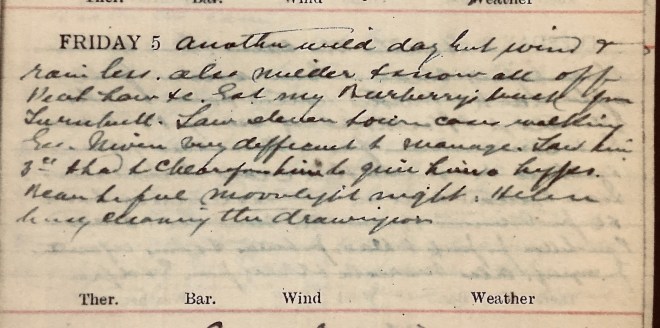 Ther. Bar. Wind Weather
FRIDAY 5 Another wild day but wind &
rain less. also milder & snow all off
Peat Law &c. Got my Burberry's back from
Turnbull. Saw eleven town cases walking
Ess. Niven very difficult to manage. Saw him
3ce & had to to give him a hypo.
Beautiful moonlight night. Helen
busy cleaning the drawingroom
Ther. Bar. Wind Weather